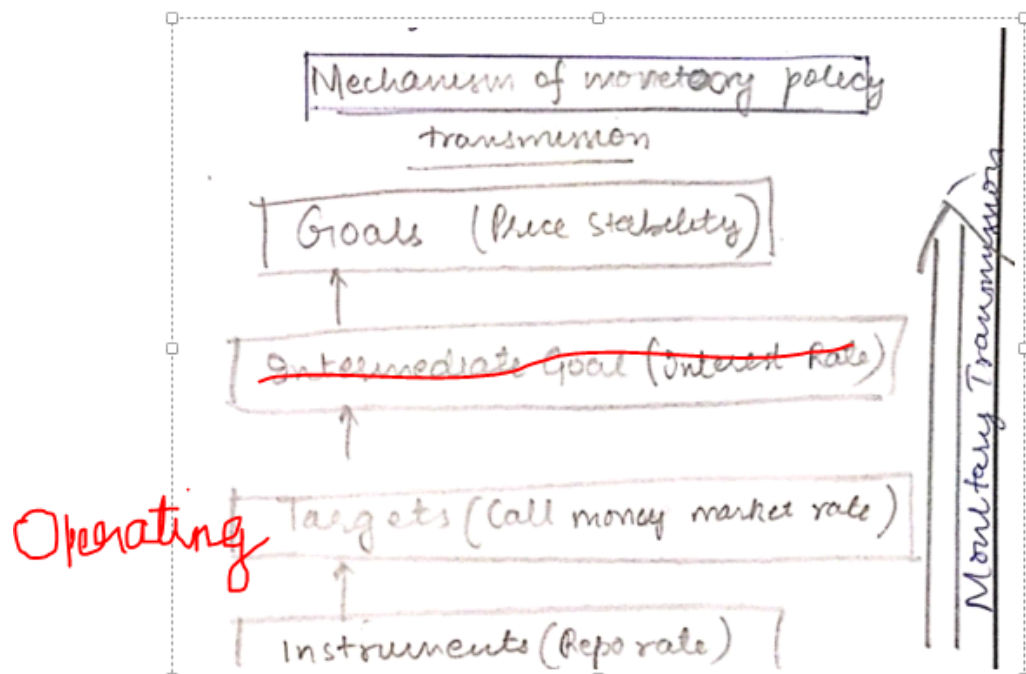 Mechanism of monetary policy
transmission
Goals (Price stability)
Intermediate Goal (Interest Rate)
Operating Targets (Call money market rate)
Instruments (Repo rate)
Monitary Transmission